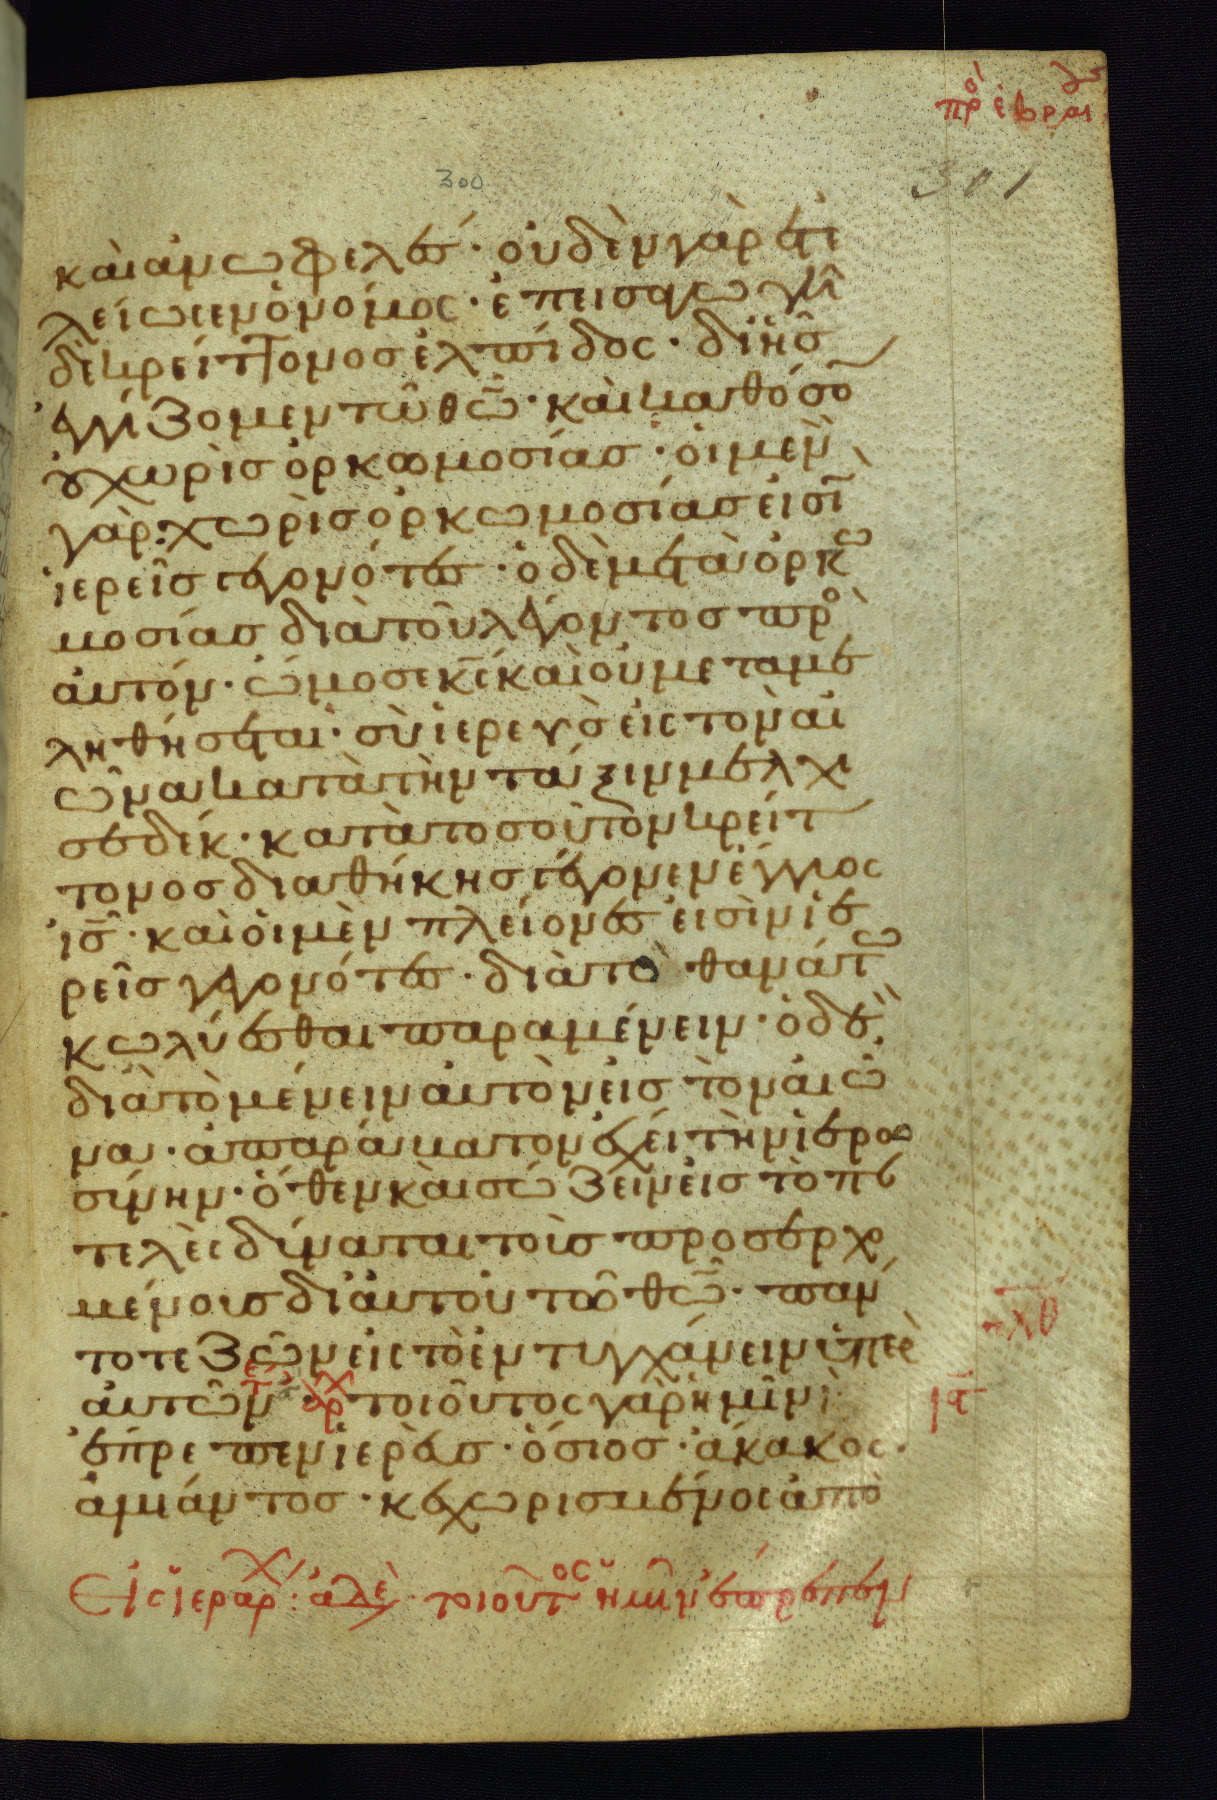 πρὸ ἑβραι
300
301
καὶ ἀνωφελές· οὐδὲν γὰρ ἐτε
λείωσεν ὁ νόμος· ἐπεισαγωγὴ
δὲ κρείττονος ἐλπίδος· δι ἧς
ἐγγίζομεν τῶ θῶ· καὶ καθόσον
οὐ χωρὶς ὁρκωμοσίας· οἱ μὲν
γὰρ χωρὶς ὁρκωμοσίας εἰσὶ
ἱερεῖς γεγονότες· ὁ δὲ μετὰ ὁρκω
μοσίας διὰ τοῦ λέγοντος πρὸ
αὐτόν· ὤμοσε κς καὶ οὐ μεταμε
ληθήσεται· σὺ ἱερεὺς εἰς τὸν αἰ
ῶνα κατὰ τὴν τάξιν μελχι
σεδέκ· κατὰ τοσοῦτον κρείτ
τονος διαθήκης γέγονεν ἔγγυος
ις· καὶ οἱ μὲν πλείονες εἰσὶν ἱε
ρεῖς γεγονότες· διὰ τὸ θανάτω
κωλύεσθαι παραμένειν· ὁ δὲ
διὰ τὸ μένειν αὐτὸν εἰς τὸν αἰῶ
να· ἀπαράβατον ἔχει τὴν ἱερω
σύνην· ὅθεν καὶ σώζειν εἰς τὸ παν
τελὲς δύναται τοὺς προσερχο
μένους δι αὐτοῦ τῶ θῶ· πάν
τοτε ζῶν εἰς τὸ ἐντυγχάνειν ὑπὲρ
αὐτῶν· τοιοῦτος γὰρ ἡμῖν
ἔπρεπεν ἱερεὺς· ὅσιος· ἄκακος·
ἀμίαντος· κεχωρισμένος ἀπὸ
Εἰς ἱεράρχ: ἀλλὲ τοιοῦτος ἡμῖν ἔπρεπεν